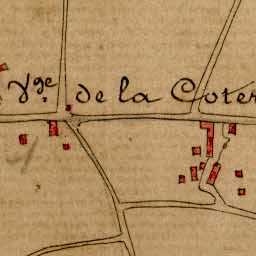 Vge de la Coter